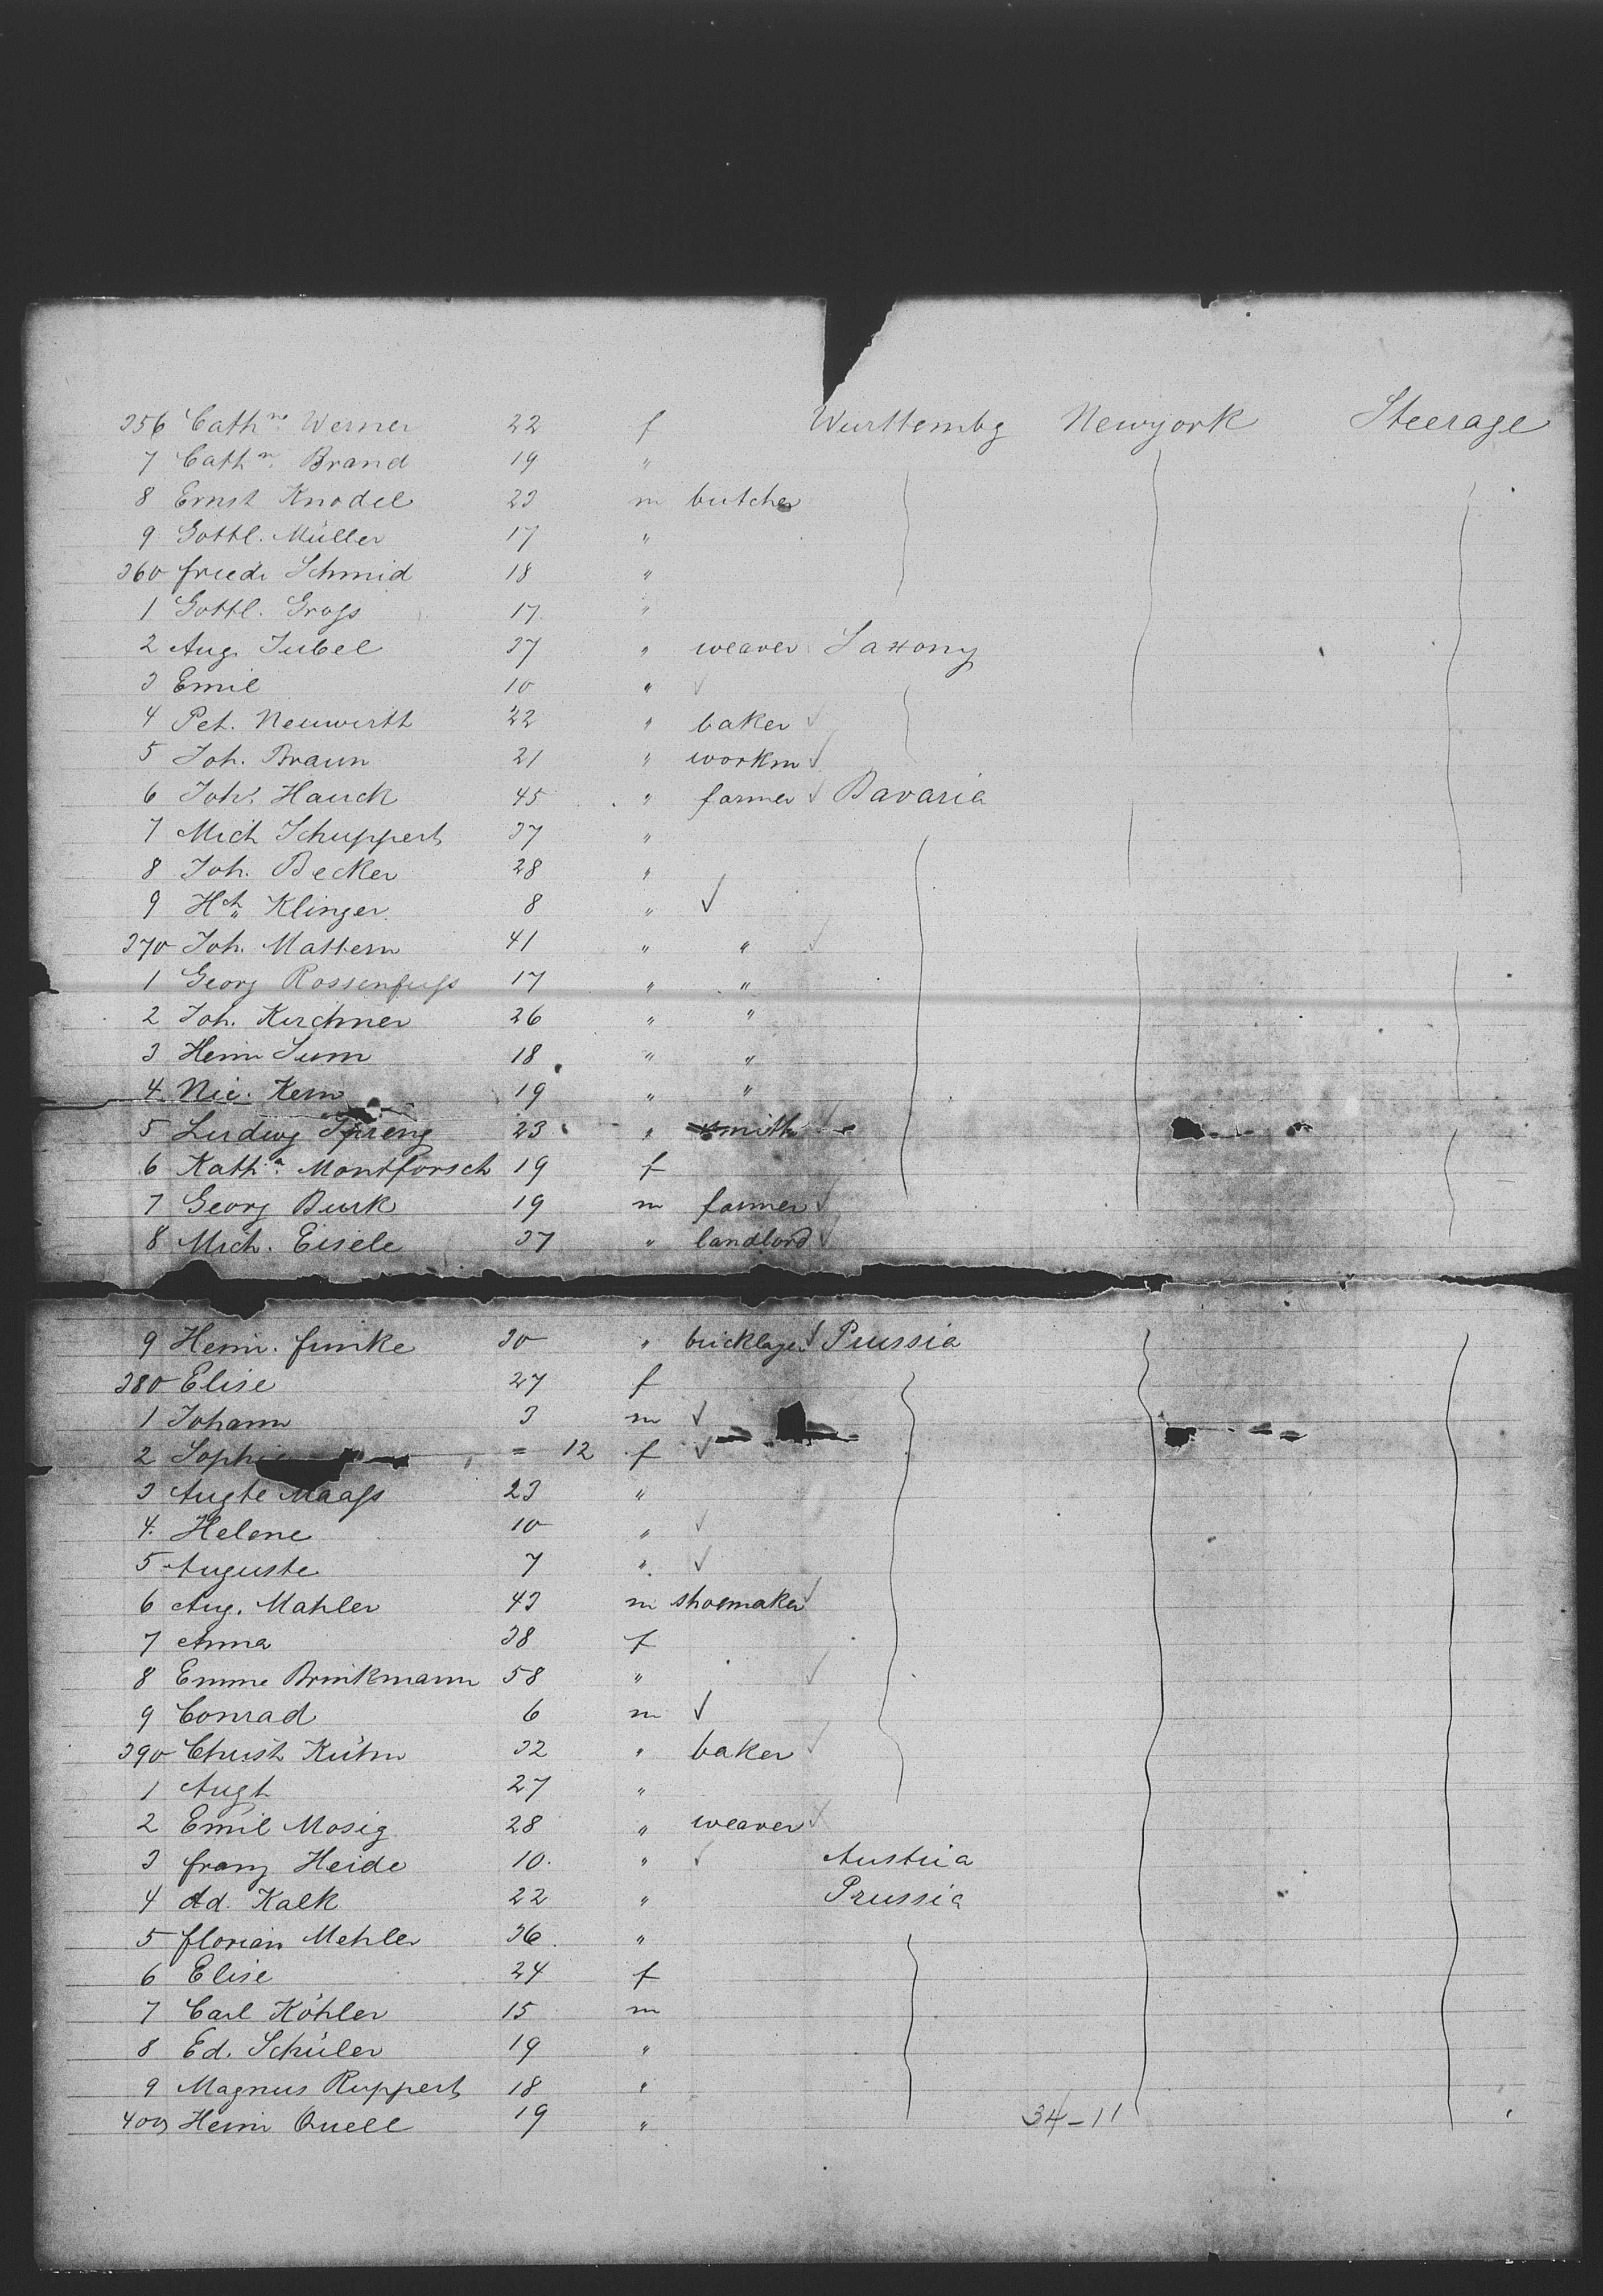 356 Cath^ne Werner 22 f Wurttembg Newyork Steerage
7 Cath^ne Brand 19 "
8 Ernst Knodel 23 m butcher
9 Gottl. Müller 17 "
360 Friedr Schmid 18 "
1 Gottl. Gross 17 "
2 Aug. Jubel 37 " weaver Saxony
3 Emil 10 " ✓
4 Pet. Neuwirth 22 " baker ✓
5 Joh. Braun 21 " workm ✓
6 Joh. Hauck 45 " farmer ✓ Bavaria
7 Mich Schuppert 37 "
8 Joh. Becker 28 "
9 Hch Klinger 8 " ✓
370 Joh. Mattern 41 " " ✓
1 Georg Rossenfuss 17 " "
2 Joh. Kirchner 26 " "
3 Heinr Sum 18 " "
4 Nic. Kern 19 " "
5 Ludwig Spreng 23 " smith ✓
6 Kath^a Montforsch 19 f
7 Georg Burk 19 m farmer ✓
8 Mich. Eisele 37 " landlord ✓
9 Heinr. Funke 30 " bricklayer ✓ Prussia
380 Elise 27 f
1 Johann 3 m ✓
2 Sophie = 12 f ✓
3 Augte Maass 23 "
4. Helene 10 " ✓
5 Auguste 7 " ✓
6 Aug. Mahler 43 m shoemaker ✓
7 Anna 38 f
8 Emme Brinkmann 58 " ✓
9 Conrad 6 m ✓
390 Christ Kühn 32 " baker ✓
1 Augt 27 "
2 Emil Mosig 28 " weaver ✓
3 Franz Heide 10. " ✓ Austria
4 Ad. Kalk 22 " Prussia
5 Florian Mehler 36 "
6 Elise 24 f
7 Carl Köhler 15 m
8 Ed. Schüler 19 "
9 Magnus Ruppert 18 "
400 Heinr Quell 19 " 34-11